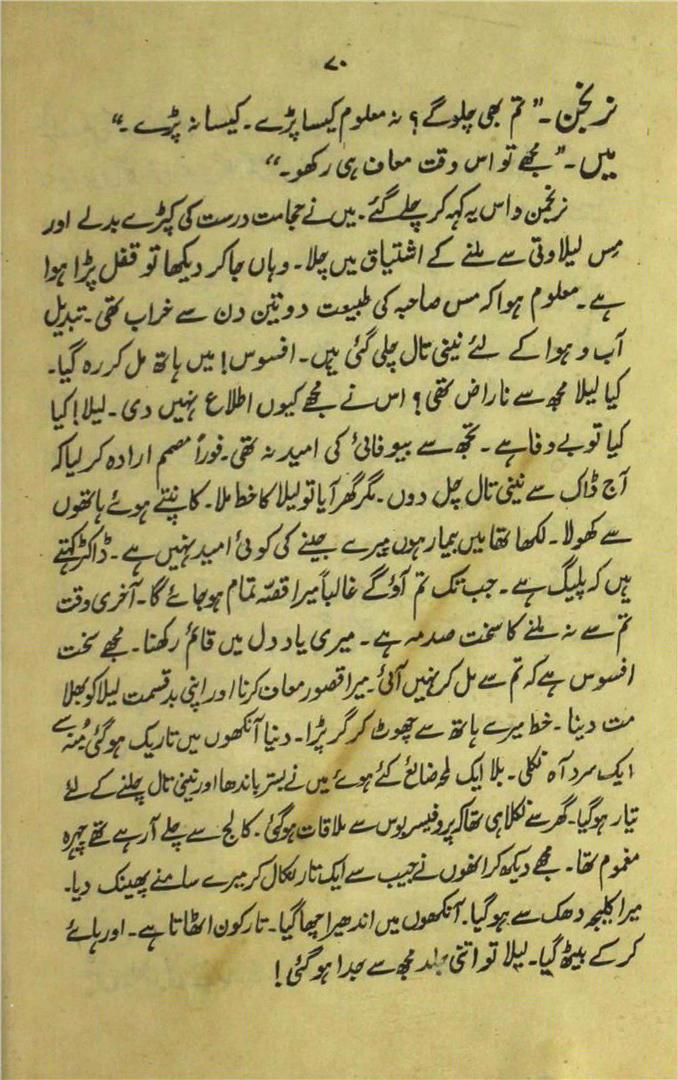 ۷۰
نرنجن۔ ”تم بھی چلوگے؟ نہ معلوم کیسا پڑے۔ کیسا نہ پڑے۔“
میں۔ ”مجھے تو اس وقت معاف ہی رکھو۔“
نرنجن داس یہ کہہ کر چلے گئے۔ میں نے حجامت درست کی کپڑے بدلے اور
مِس لیلاوتی سے ملنے کے اشتیاق میں چلا۔ وہاں جاکر دیکھا تو قفل پڑا ہوا
ہے۔ معلوم ہوا کہ مس صاحبہ کی طبیعت دو تین دن سے خراب تھی۔ تبدیل
آب و ہوا کے لئے نینی تال چلی گئی ہیں۔ افسوس! میں ہاتھ مل کر رہ گیا۔
کیا لیلا مجھ سے ناراض تھی؟ اس نے مجھے کیوں اطلاع نہیں دی۔ لیلا! کیا
کیا تو بے وفا ہے۔ تجھ سے بیوفائی کی امید نہ تھی۔ فوراً مصمم ارادہ کر لیا کہ
آج ڈاک سے نینی تال چل دوں۔ مگر گھر آیا تو لیلا کا خط ملا۔ کانپتے ہوئے ہاتھوں
سے کھولا۔ لکھا تھا میں بیمار ہوں میرے جینے کی کوئی امید نہیں ہے۔ ڈاکٹر کہتے
ہیں کہ پلیگ ہے۔ جب تک تم آؤگے غالباً میرا قصّہ تمام ہوجائے گا۔ آخری وقت
تم سے نہ ملنے کا سخت صدمہ ہے۔ میری یاد دل میں قائم رکھنا۔ مجھے سخت
افسوس ہے کہ تم سے مل کر نہیں آئی۔ میرا قصور معاف کرنا اور اپنی بدقسمت لیلا کو بھلا
مت دینا۔ خط میرے ہاتھ سے چھوٹ کر گر پڑا۔ دنیا آنکھوں میں تاریک ہوگئی مُنہ سے
ایک سرد آہ نکلی۔ بلا ایک لمحہ ضائع کئے ہوئے میں نے بستر باندھا اور نینی تال چلنے کے لئے
تیار ہوگیا۔ گھر سے نکلا ہی تھا کہ پروفیسر بوس سے ملاقات ہوگئی۔ کالج سے چلے آرہے تھے چہرہ
مغموم تھا۔ مجھے دیکھ کر انھوں نے جیب سے ایک تار نکال کر میرے سامنے پھینک دیا۔
میرا کلیجہ دھک سے ہوگیا۔ آنکھوں میں اندھیرا چھا گیا۔ تار کون اٹھاتا ہے۔ اور ہائے
کر کے بیٹھ گیا۔ لیلا تو اتنی جلد مجھ سے جدا ہوگئی!